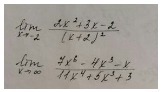 lim x→-2 (2x²+3x-2)/(x+2)²
lim x→∞ (7x⁶-4x³-x)/(11x⁴+5x²+3)